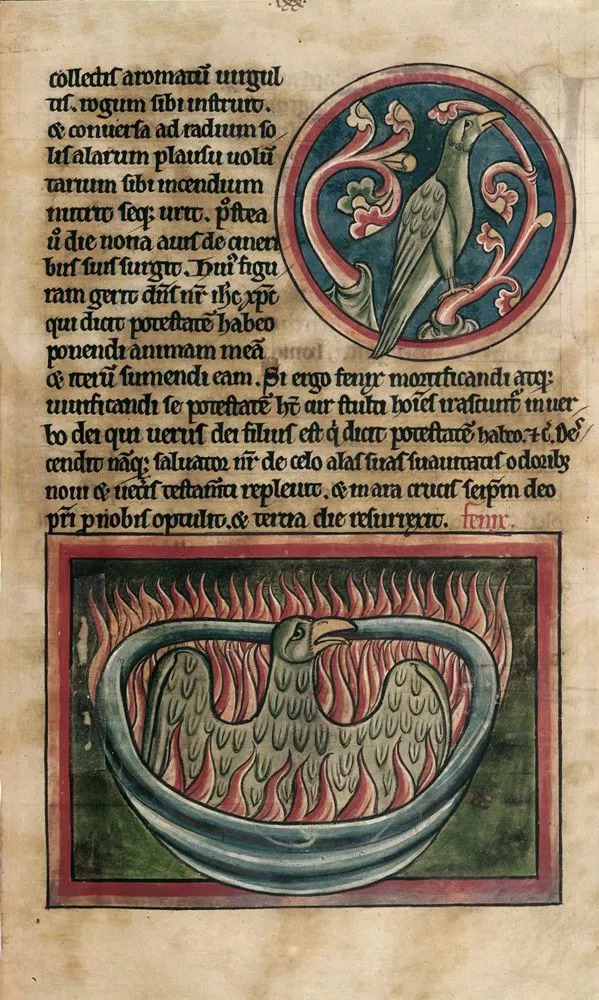 collectis aromatū uirgul
tis. rogum sibi instruit.
& conuersa ad radium so
lis alarum plausu uolū
tarium sibi incendium
nutrit seq; urit. p̄ostea
ū die nona auis de cineri
bus suis surgit. Huiꝰ figu
ram gerit dn̄s nr̄ ih̄c xp̄c
qui dicit potestatē habeo
ponendi animam meā
& iterū sumendi eam. Si ergo fenix mortificandi atq;
uiuificandi se potestatē ht̄ cur stulti hoīes irascunt᷑ in uer
bo dei qui uerus dei filius est q̇ dicit potestatē habeo. ⁊ c̄. Des̄
cendit nāq; saluator nr̄ de celo alas suas suauitatis odoribꝫ
noui & uetis̄ testam̄ti repleuit. & in ara crucis seip̄m deo
pr̄i ꝓ nobis optulit. & tercia die resurrexit. fenix.